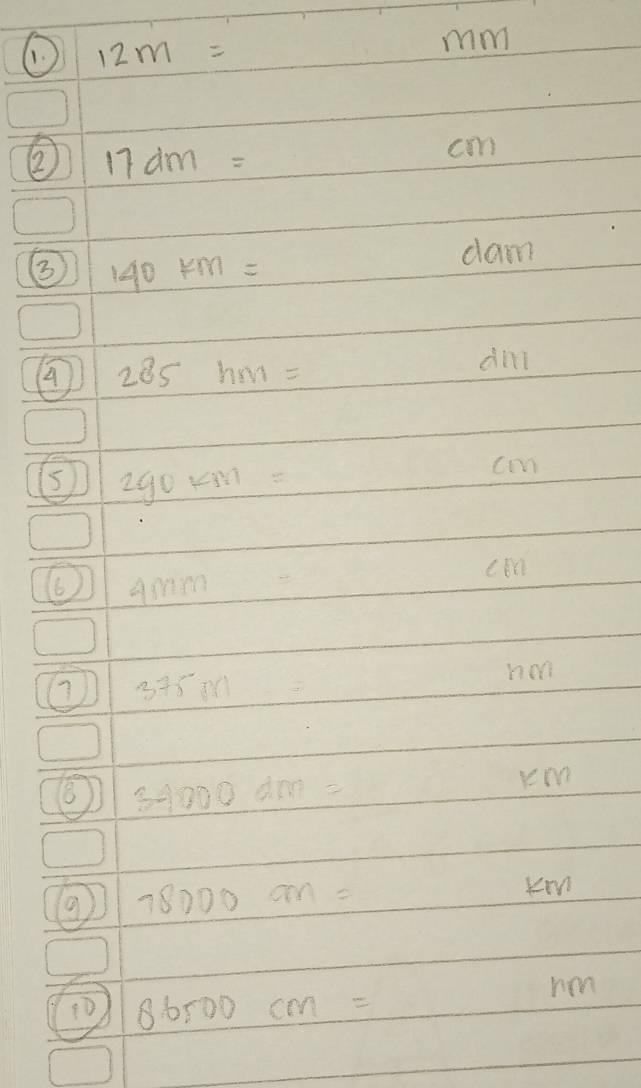 1. 12m = mm
2 17 dm = cm
3 140 km = dam
4 285 hm = dm
5 290 km = cm
6 4mm = cm
7 375 m = hm
8 34000 dm = km
9 78000 cm = km
10 86500 cm = hm